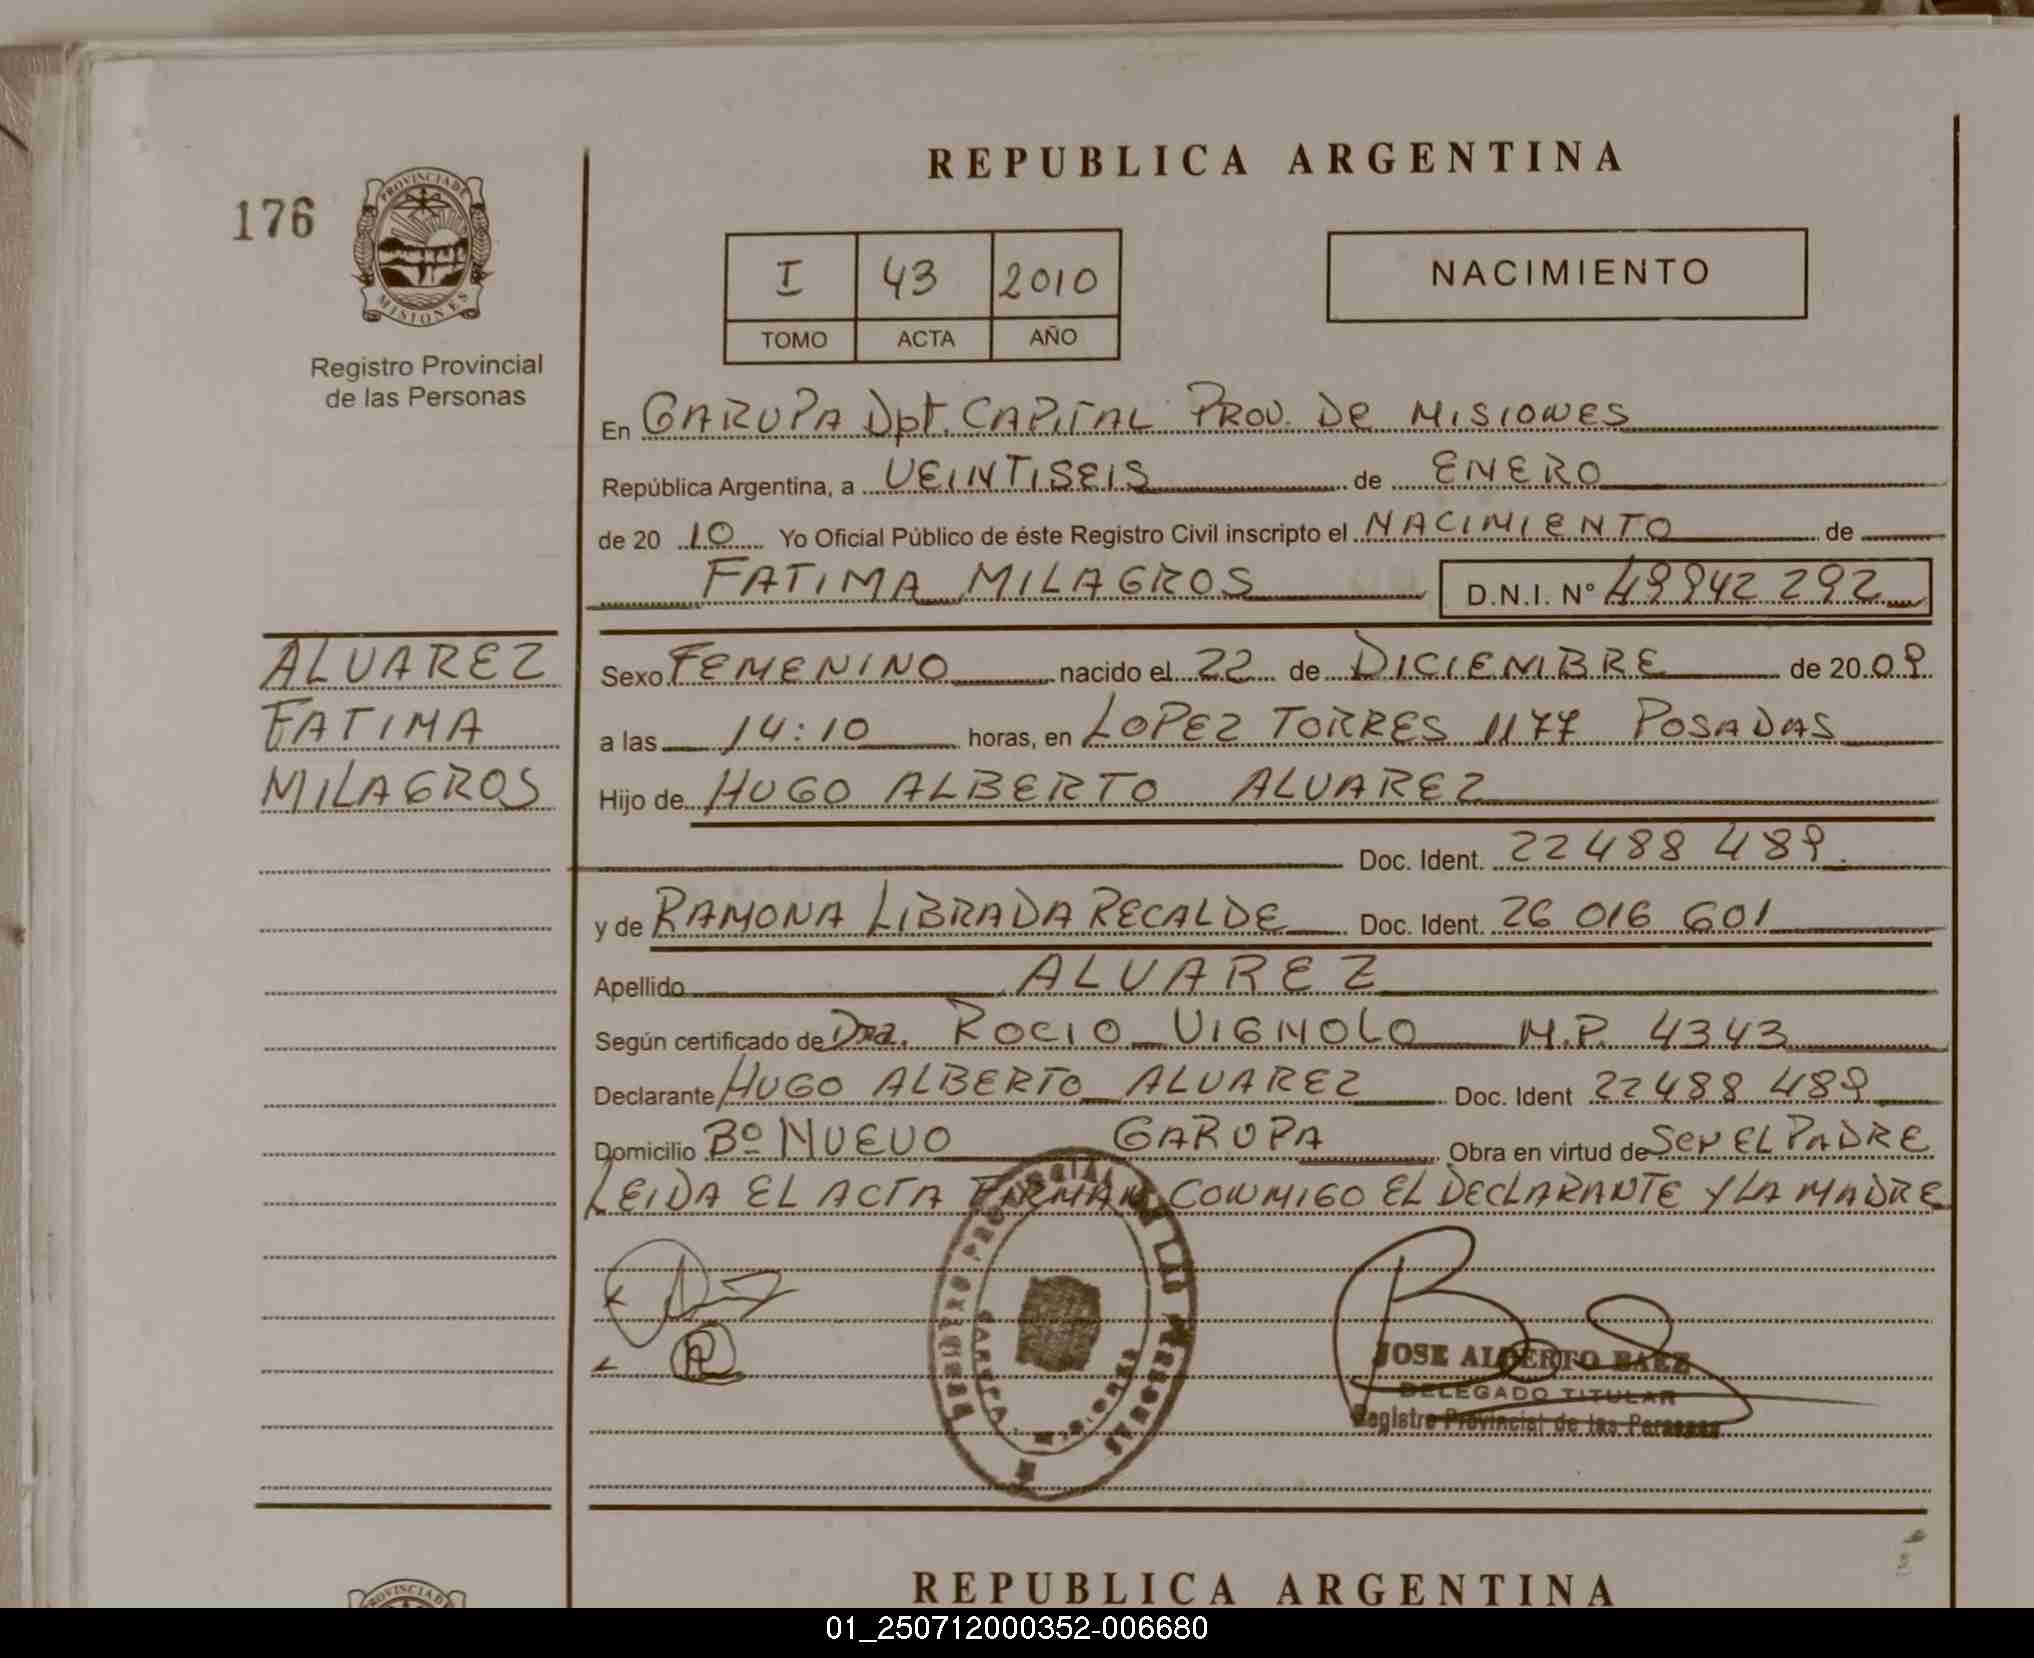 REPUBLICA ARGENTINA
176
PROVINCIA DE
MISIONES
Registro Provincial
de las Personas
I 43 2010
TOMO ACTA AÑO
NACIMIENTO
En GARUPA Dpt. CAPITAL PROV. De MISIONES
República Argentina, a VEINTISEIS de ENERO
de 20 10 Yo Oficial Público de éste Registro Civil inscripto el NACIMIENTO de
FATIMA MILAGROS D.N.I. Nº 49942 292
ALVAREZ
FATIMA
MILAGROS
Sexo FEMENINO nacido el 22 de DICIEMBRE de 20 09
a las 14:10 horas, en LOPEZ TORRES 1177 POSADAS
Hijo de HUGO ALBERTO ALVAREZ
Doc. Ident. 22 488 489.
y de RAMONA LIBRADA RECALDE Doc. Ident. 26 016 601
Apellido ALVAREZ
Según certificado de Dra. ROCIO VIGNOLO M.P. 4343
Declarante HUGO ALBERTO ALVAREZ Doc. Ident 22 488 489
Domicilio Bº NUEVO GARUPA Obra en virtud de Ser EL PADRE
LEIDA EL ACTA FIRMAN CONMIGO EL DECLARANTE Y LA MADRE
JOSE ALBERTO BAEZ
DELEGADO TITULAR
Registro Provincial de las Personas
REPUBLICA ARGENTINA
PROVINCIA D
01_250712000352-006680